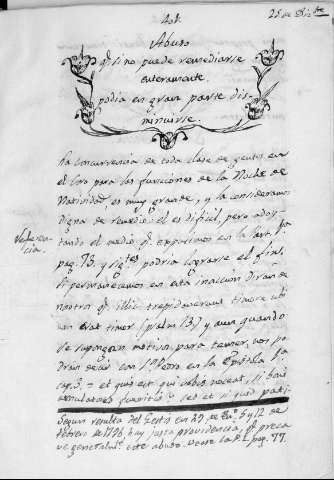 25 de Dizbre
Abuso
q. si no puede remediarse
enteramente
podia en gran parte dis-
minuirse.
La concurrencia de toda clase de gentes en
el Coro para las funciones de la Noche de
Natividad, es muy grande, y la consideramos
digna de remedio: él es dificil, pero adop-
tando el medio q. exponemos en la
pag. 73, y sigtes podria lograrse el fin.
Si permanecemos en esta inaccion diran de
nosotros q. illic trepidaverunt timore ubi
non erat timor (psalm 13) y aun quando
se supongan motivos para temer, nos po-
dran decir con Sn Pedro en la Epistola
cap. 3. et quis est qui vobis noceat, si boni
aemulatores fueritis? sed et si quid pati-
Segun resulta del Gestis en 29 de En.o y 12 de
Febrero de 1796 hay justa providencia, q. preca-
ve generalmte este abuso. Vease la pag. 77.